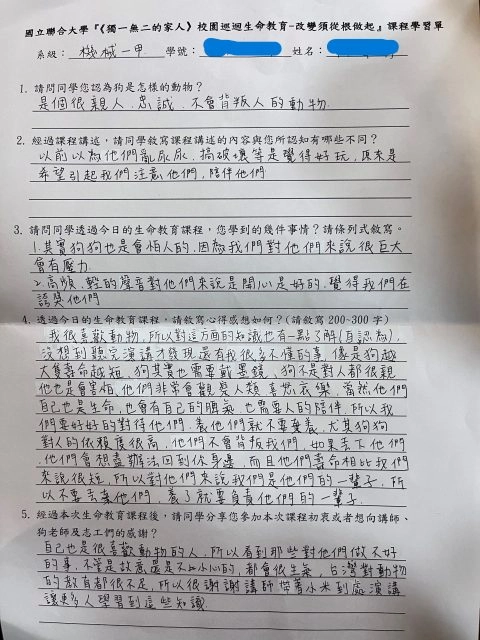 國立聯合大學『《獨一無二的家人》校園巡迴生命教育-改變須從根做起』課程學習單
系級： 機械一甲 學號： 姓名：
1. 請問同學您認為狗是怎樣的動物？
是個很親人、忠誠、不會背叛人的動物.
2. 經過課程講述，請同學敘寫課程講述的內容與您所認知有哪些不同？
以前以為他們亂尿尿、搞破壞等是覺得好玩，原來是
希望引起我們注意他們，陪伴他們
3. 請問同學透過今日的生命教育課程，您學到的幾件事情？請條列式敘寫。
1.其實狗狗也是會怕人的.因為我們對他們來說很巨大
會有壓力.
2.高頻、輕的聲音對他們來說是開心是好的.覺得我們在
誇獎他們
4. 透過今日的生命教育課程，請敘寫心得感想如何？(請敘寫 200-300 字)
我很喜歡動物，所以對這方面的知識也有一點了解(自認為)，
沒想到聽完演講才發現還有我很多不懂的事，像是狗越
大隻壽命越短、狗其實也需要戴墨鏡、狗不是對人都很親
他也是會害怕.他們非常會觀察人類喜怒哀樂，當然他們
自己也是生命，也會有自己的脾氣，也需要人的陪伴，所以我
們要好好的對待他們，養他們就不要棄養，尤其狗狗
對人的依賴度很高，他們不會背叛我們，如果丟下他們
，他們會想盡辦法回到你身邊，而且他們壽命相比我們
來說很短，所以對他們來說我們是他們的一輩子，所
以不要丟棄他們，養了就要負責他們的一輩子.
5. 經過本次生命教育課程後，請同學分享您參加本次課程初衷或者想向講師、
狗老師及志工們的感謝？
自己也是很喜歡動物的人，所以看到那些對他們做不好
的事，不管是故意還是不小心的，都會很生氣，台灣對動物
的教育都很不足，所以很謝謝講師帶著小米到處演講
讓更多人學習到這些知識.